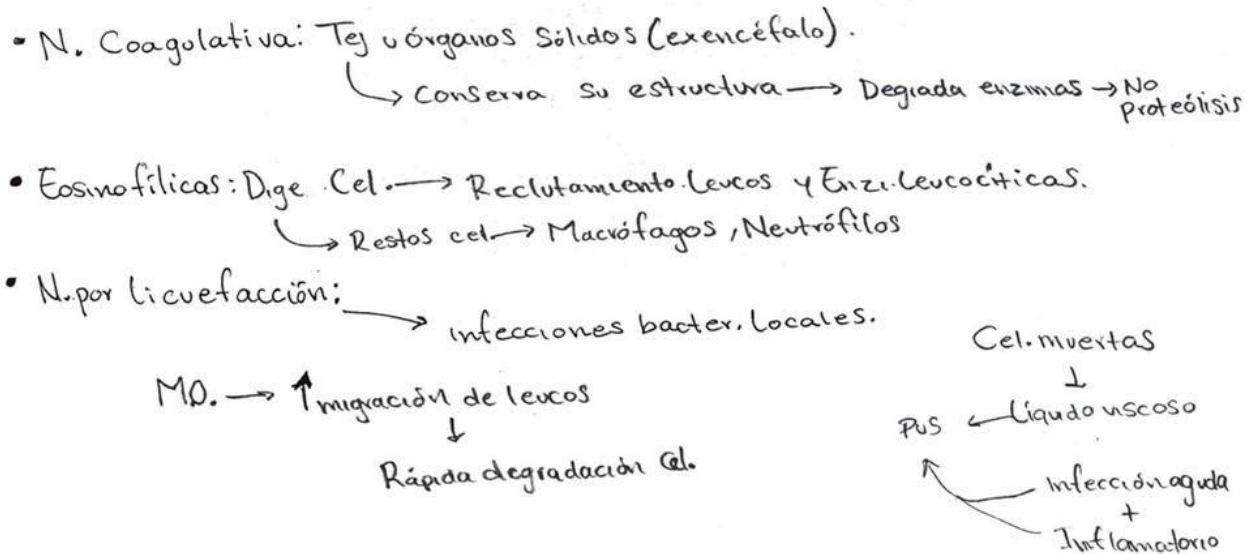 • N. Coagulativa: Tej u órganos Sólidos (exencéfalo).
↳ Conserva su estructura → Degrada enzimas → No proteólisis
• Eosinofílicas: Dige. Cel. → Reclutamiento Leucos y Enzi. Leucocíticas.
↳ Restos cel → Macrófagos, Neutrófilos
• N. por licuefacción:
→ infecciones bacter. Locales.
MO. → ↑ migración de leucos
↓
Rápida degradación Cel.
Cel. muertas
↓
Pus ← Líquido viscoso
Infección aguda
+
Inflamatorio